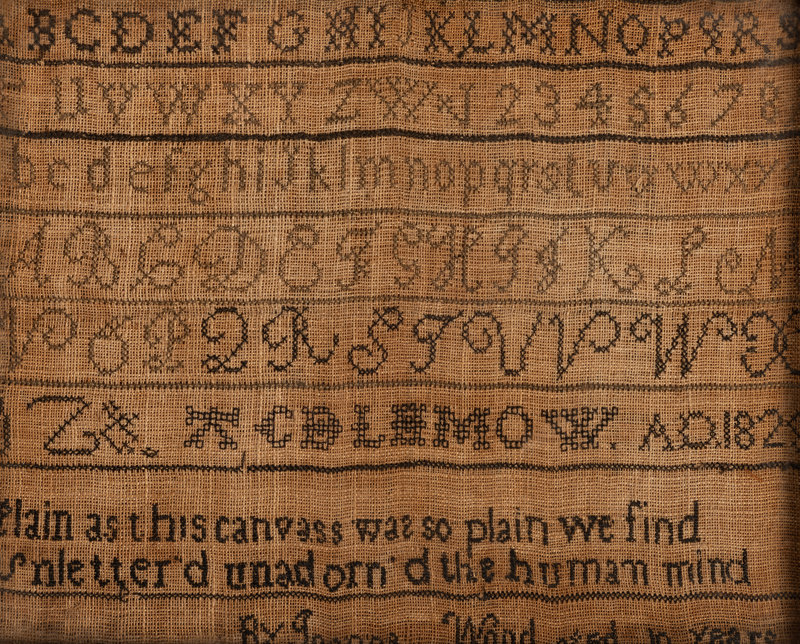 A B C D E F G H I J K L M N O P Q R S
T U V W X Y Z W N 1 2 3 4 5 6 7 8
b c d e f g h i J k l m n o p q r s t u v w x y
A B C D E F G H I J K L M
N O P Q R S T U V W X
Z &. A C D L E M O W. A.D.182
Plain as this canvass was so plain we find
Unletter'd unadorn'd the human mind
By